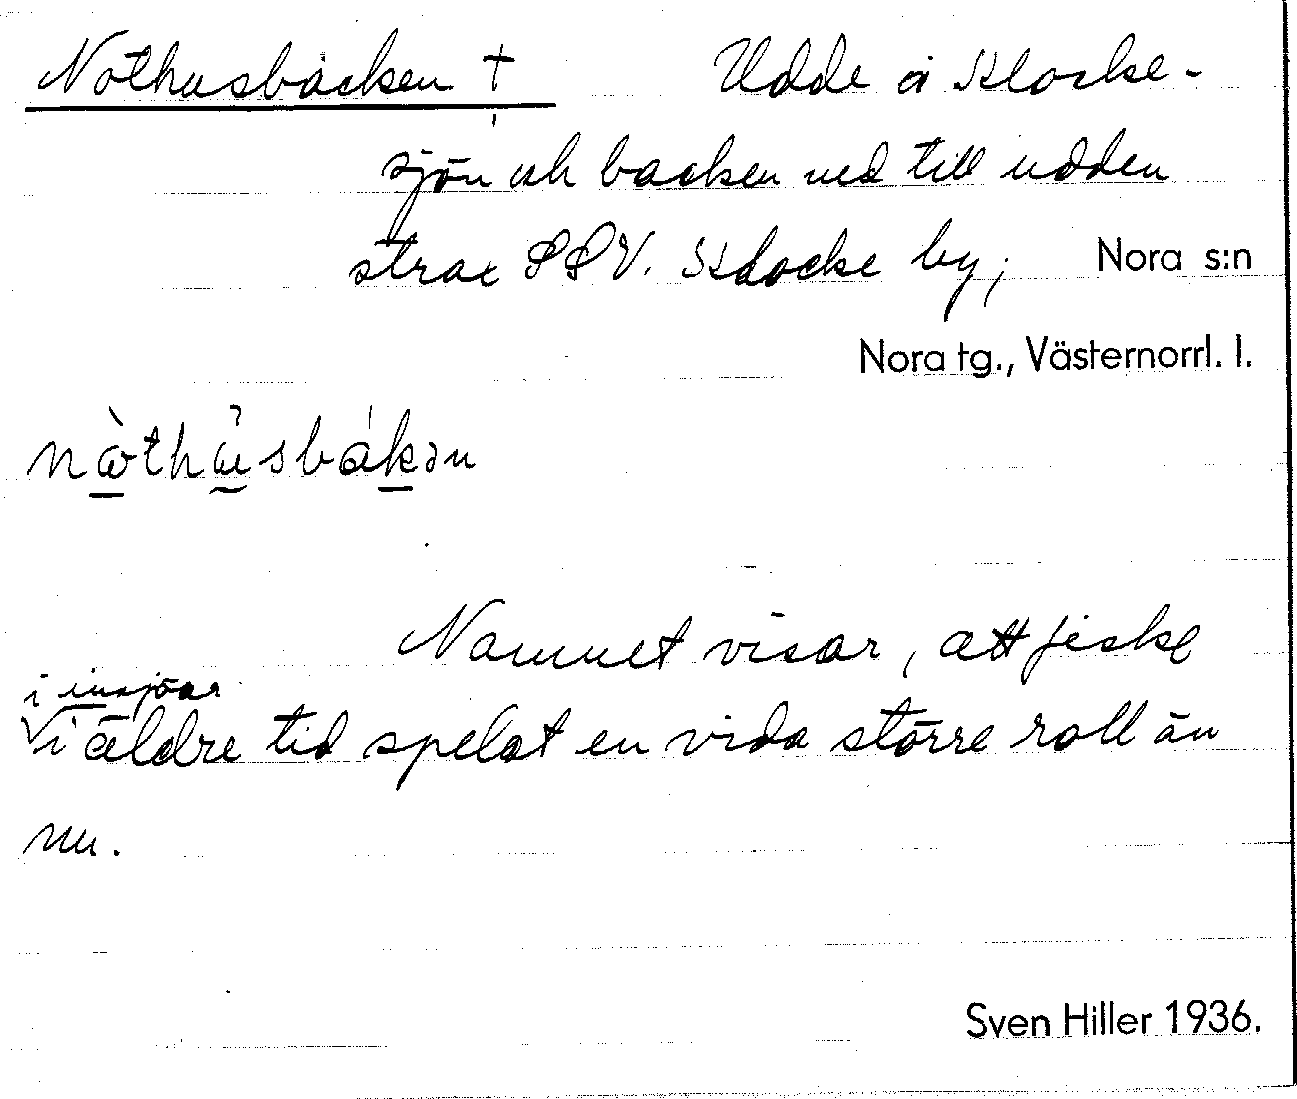 Nothusbacken †
Udde å Klocke-
sjön och backen ned till udden
strax SSV. Klocke by;
Nora s:n
Nora tg., Västernorrl. l.
Namnet visar, att fiske
i insjöar
i äldre tid spelat en vida större roll än
nu.
Sven Hiller 1936.